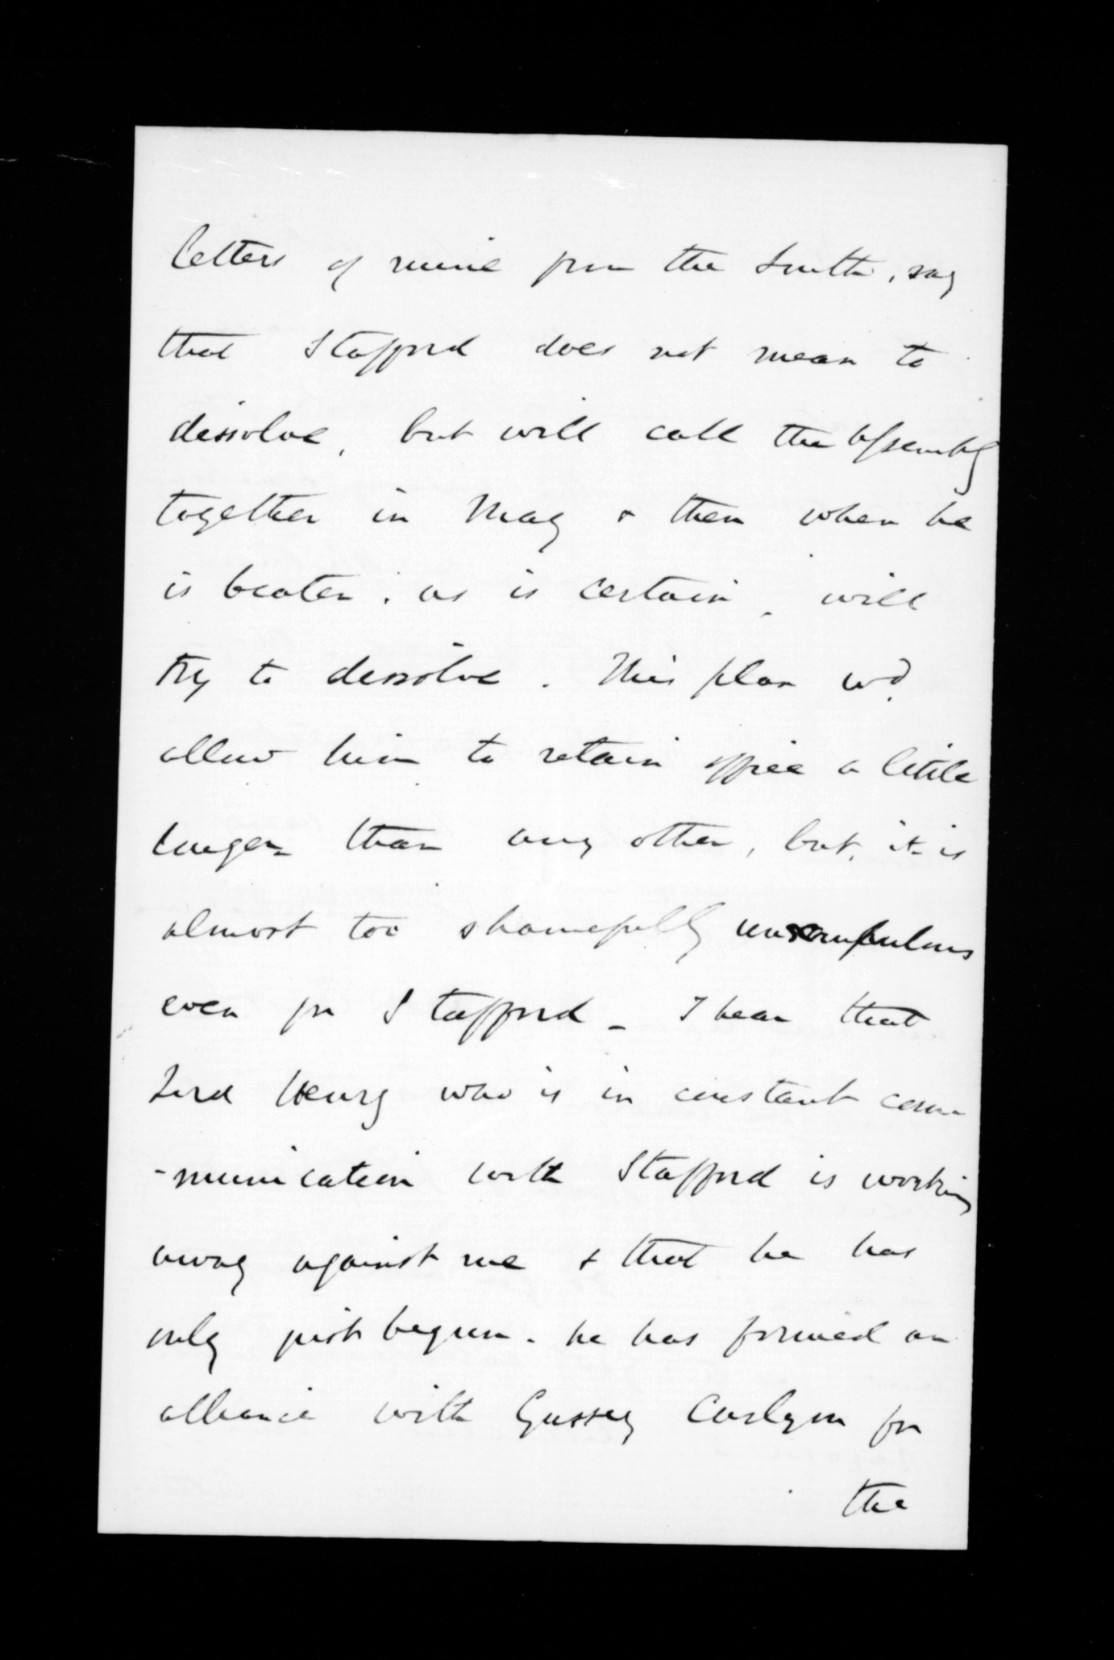 letters of mine from the South, say
that Stafford does not mean to
dissolve, but will call the Assembly
together in May & then when he
is beaten, as is certain, will
try to dissolve. This plan wd.
allow him to retain office a little
longer than any other, but, it is
almost too shamefully unscrupulous
even for Stafford _ I hear that
Lord Henry who is in constant com
-munication with Stafford is working
away against me & that he has
only just begun. he has formed an
alliance with Gussey for
the